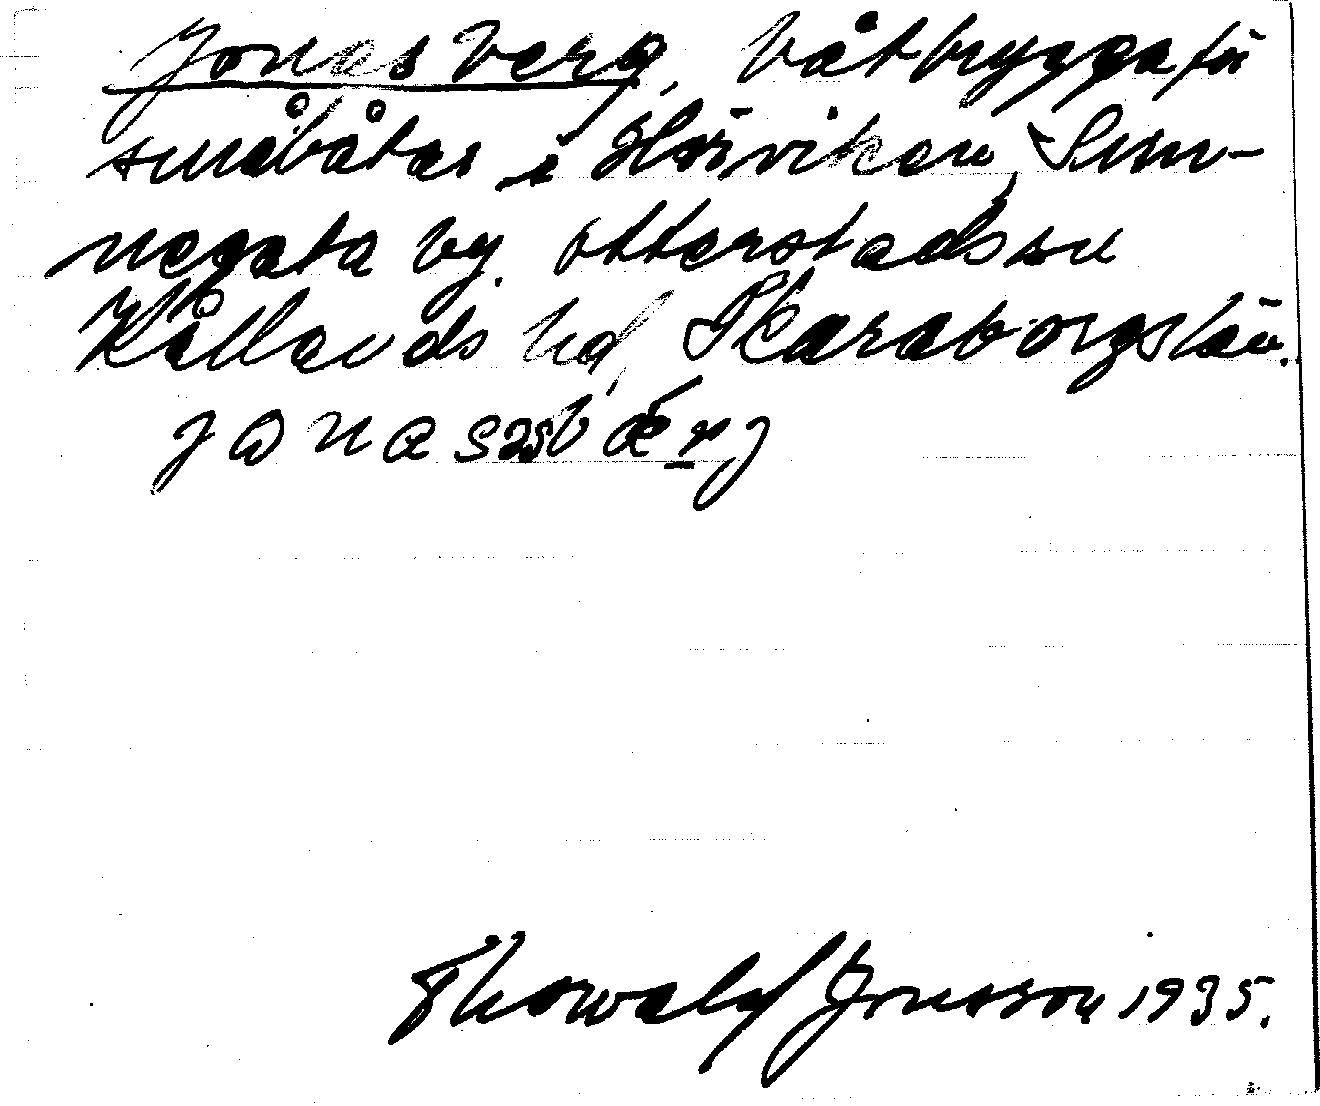 Jonasberg, båtbrygga för
småbåtar i Hörviken, Sun-
negata by. Otterstads sn
Kållands hd, Skaraborgs län.
Thorvald Jonsson 1935.